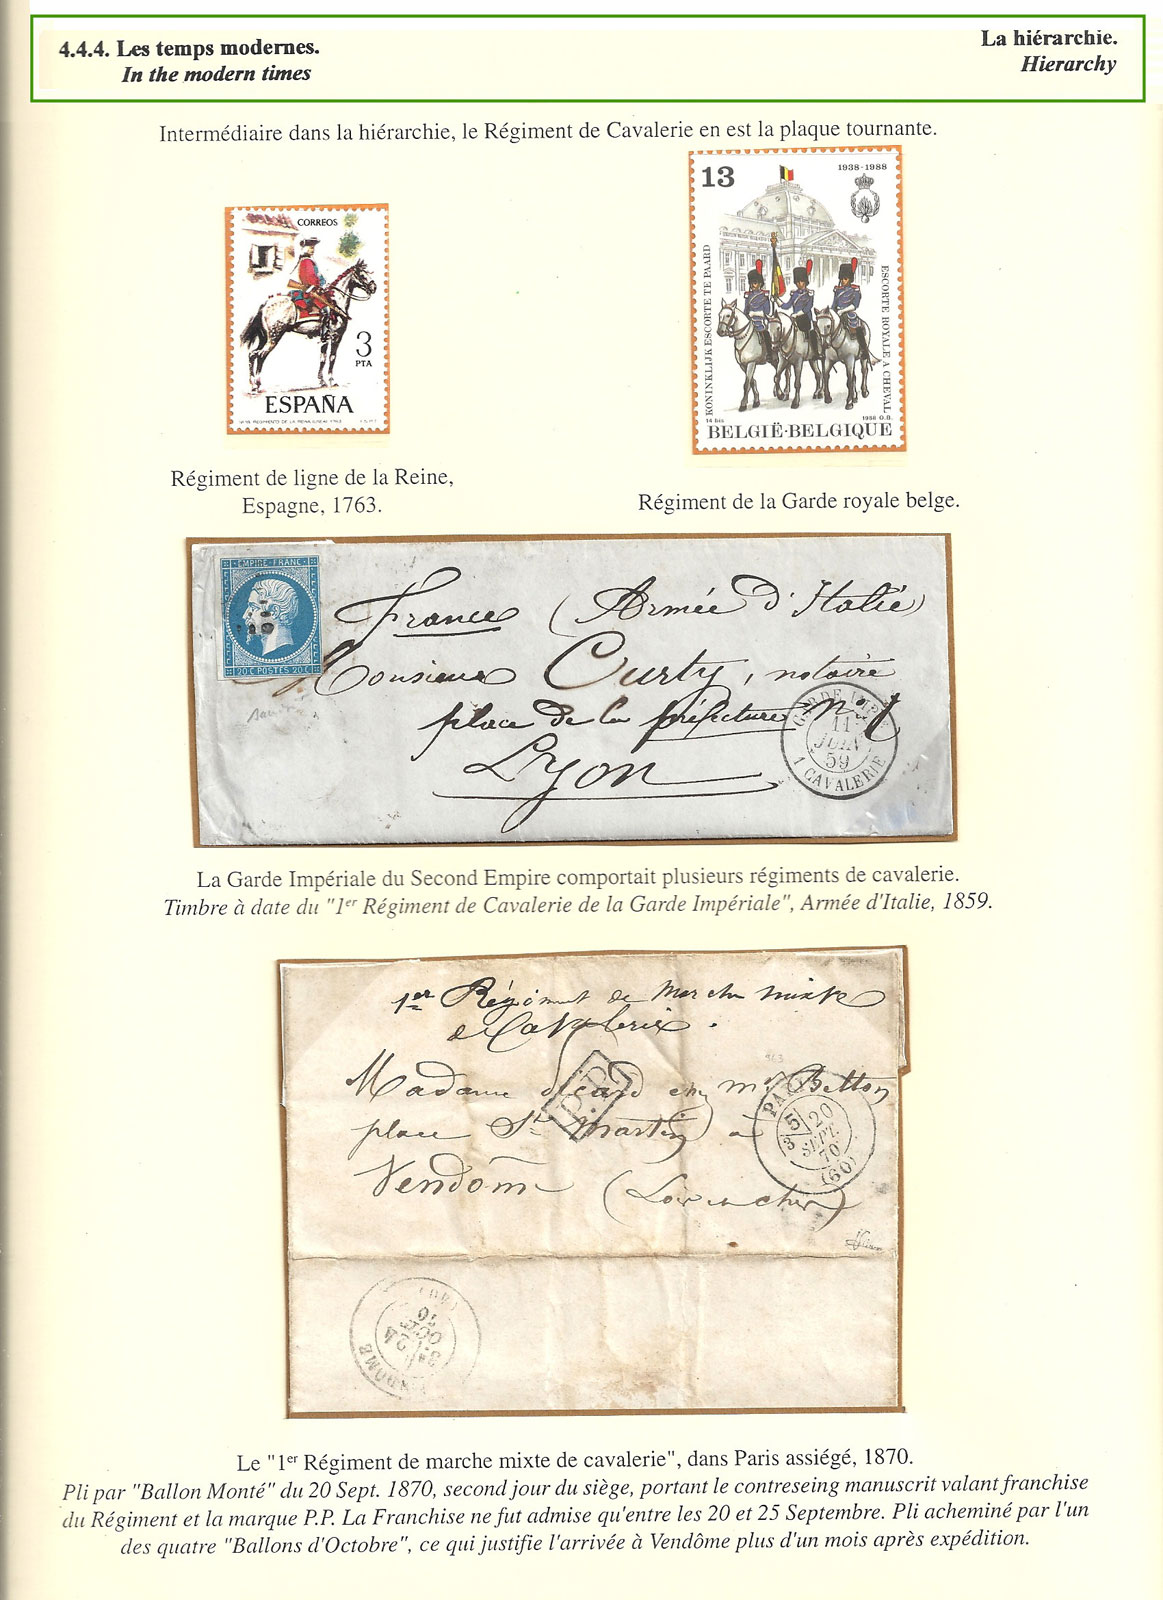 4.4.4. Les temps modernes.
In the modern times
La hiérarchie.
Hierarchy
Intermédiaire dans la hiérarchie, le Régiment de Cavalerie en est la plaque tournante.
CORREOS
3
PTA
ESPAÑA
13
1938-1988
KONINKLIJK ESCORTE TE PAARD
ESCORTE ROYALE A CHEVAL
14 bis
1988 O.B.
BELGIË-BELGIQUE
Régiment de ligne de la Reine,
Espagne, 1763.
Régiment de la Garde royale belge.
EMPIRE FRANC
20 C POSTES 20 C
France (Armée d'Italie)
Monsieur Curty, notaire
place de la préfecture n° 1
Lyon
GARDE IMP
11
JUIN
59
1 CAVALERIE
La Garde Impériale du Second Empire comportait plusieurs régiments de cavalerie.
Timbre à date du "1er Régiment de Cavalerie de la Garde Impériale", Armée d'Italie, 1859.
1er Régiment de Marche mixte
de Cavalerie.
Madame chez Mr Betton
place St Martin à
Vendôme (Loir et cher)
P.P.
PARIS
5
3
20
SEPT.
70
(60)
24
OCT
70
Le "1er Régiment de marche mixte de cavalerie", dans Paris assiégé, 1870.
Pli par "Ballon Monté" du 20 Sept. 1870, second jour du siège, portant le contreseing manuscrit valant franchise
du Régiment et la marque P.P. La Franchise ne fut admise qu'entre les 20 et 25 Septembre. Pli acheminé par l'un
des quatre "Ballons d'Octobre", ce qui justifie l'arrivée à Vendôme plus d'un mois après expédition.